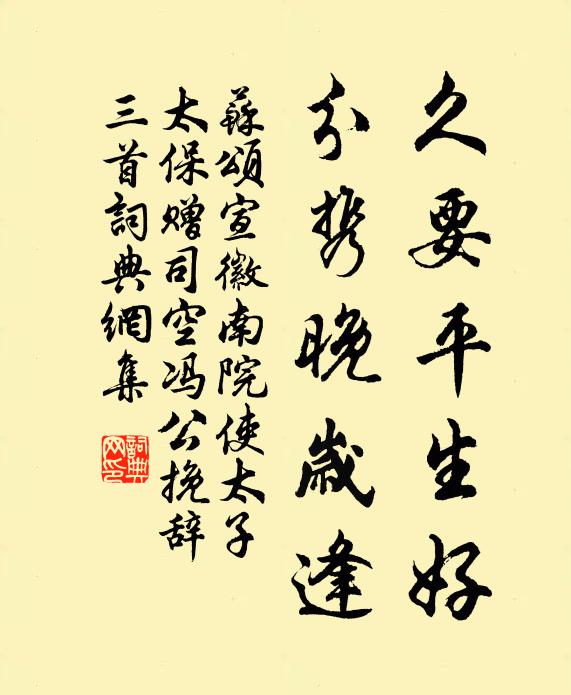 久要平生好
分携晚歲逢
蘇頌宣徽南院使太子
太保赠司空冯公挽辞
三首詞典網集
詞典网印